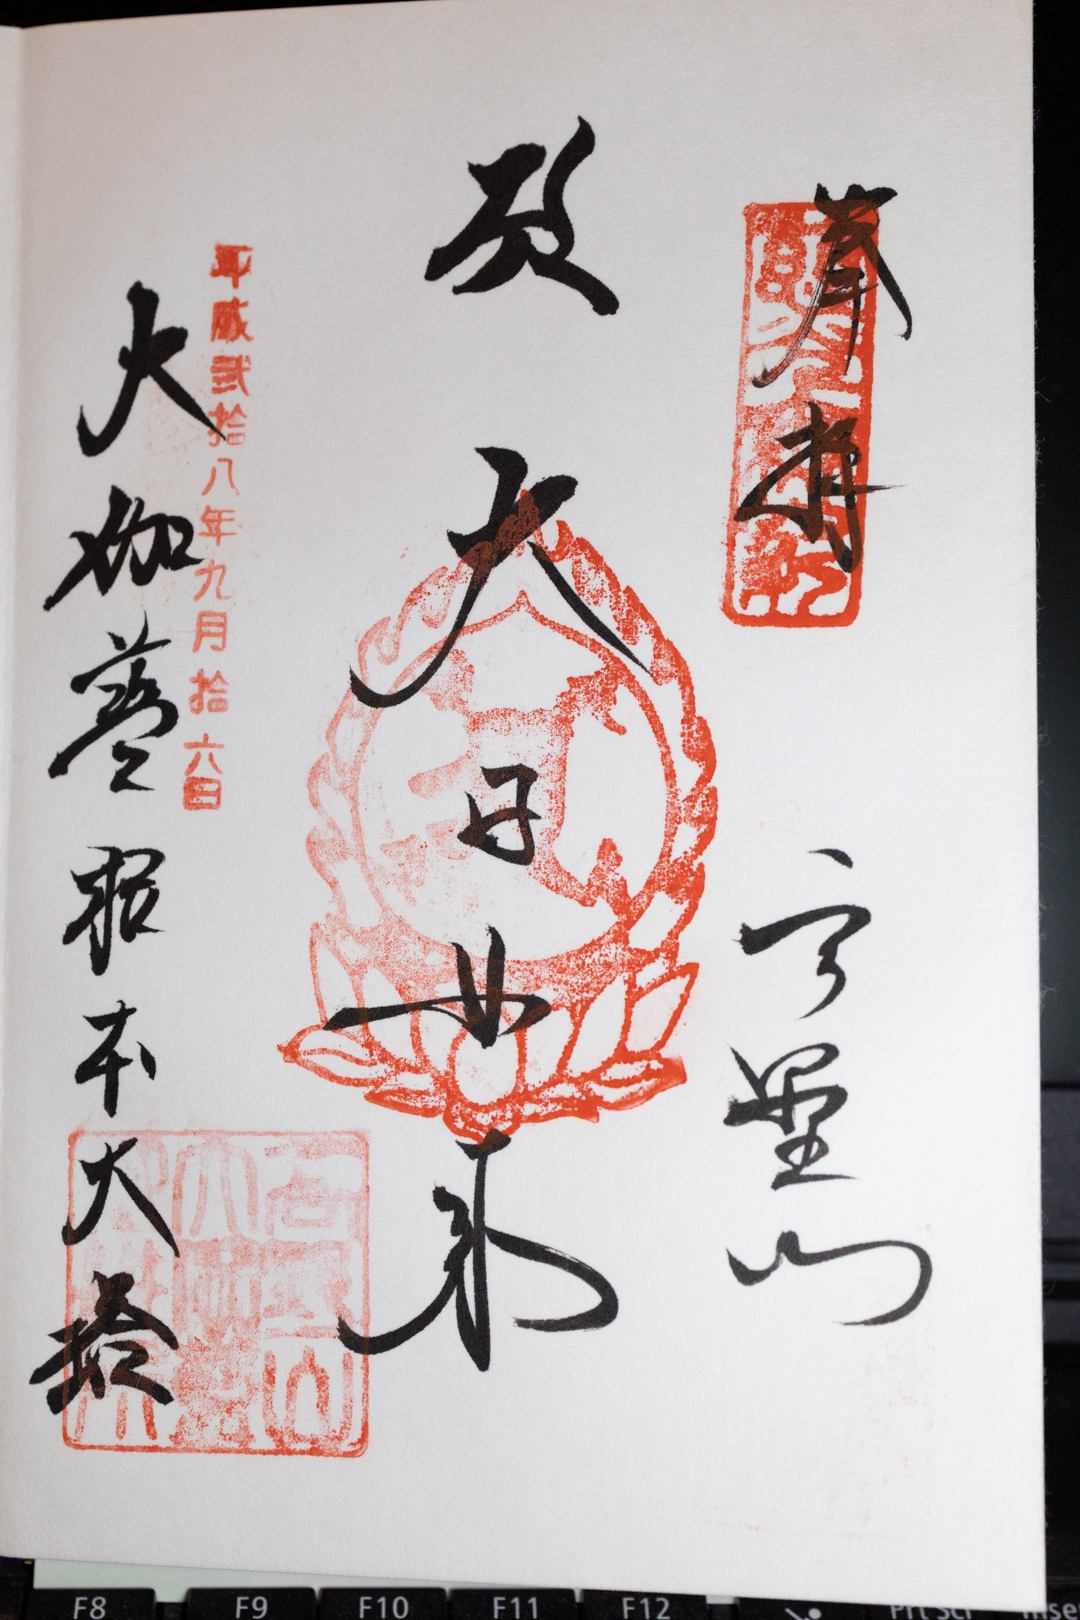 奉拝 高野山
大日如来
平成弍拾八年九月拾六日
大伽藍根本大塔
F8 F9 F10 F11 F12